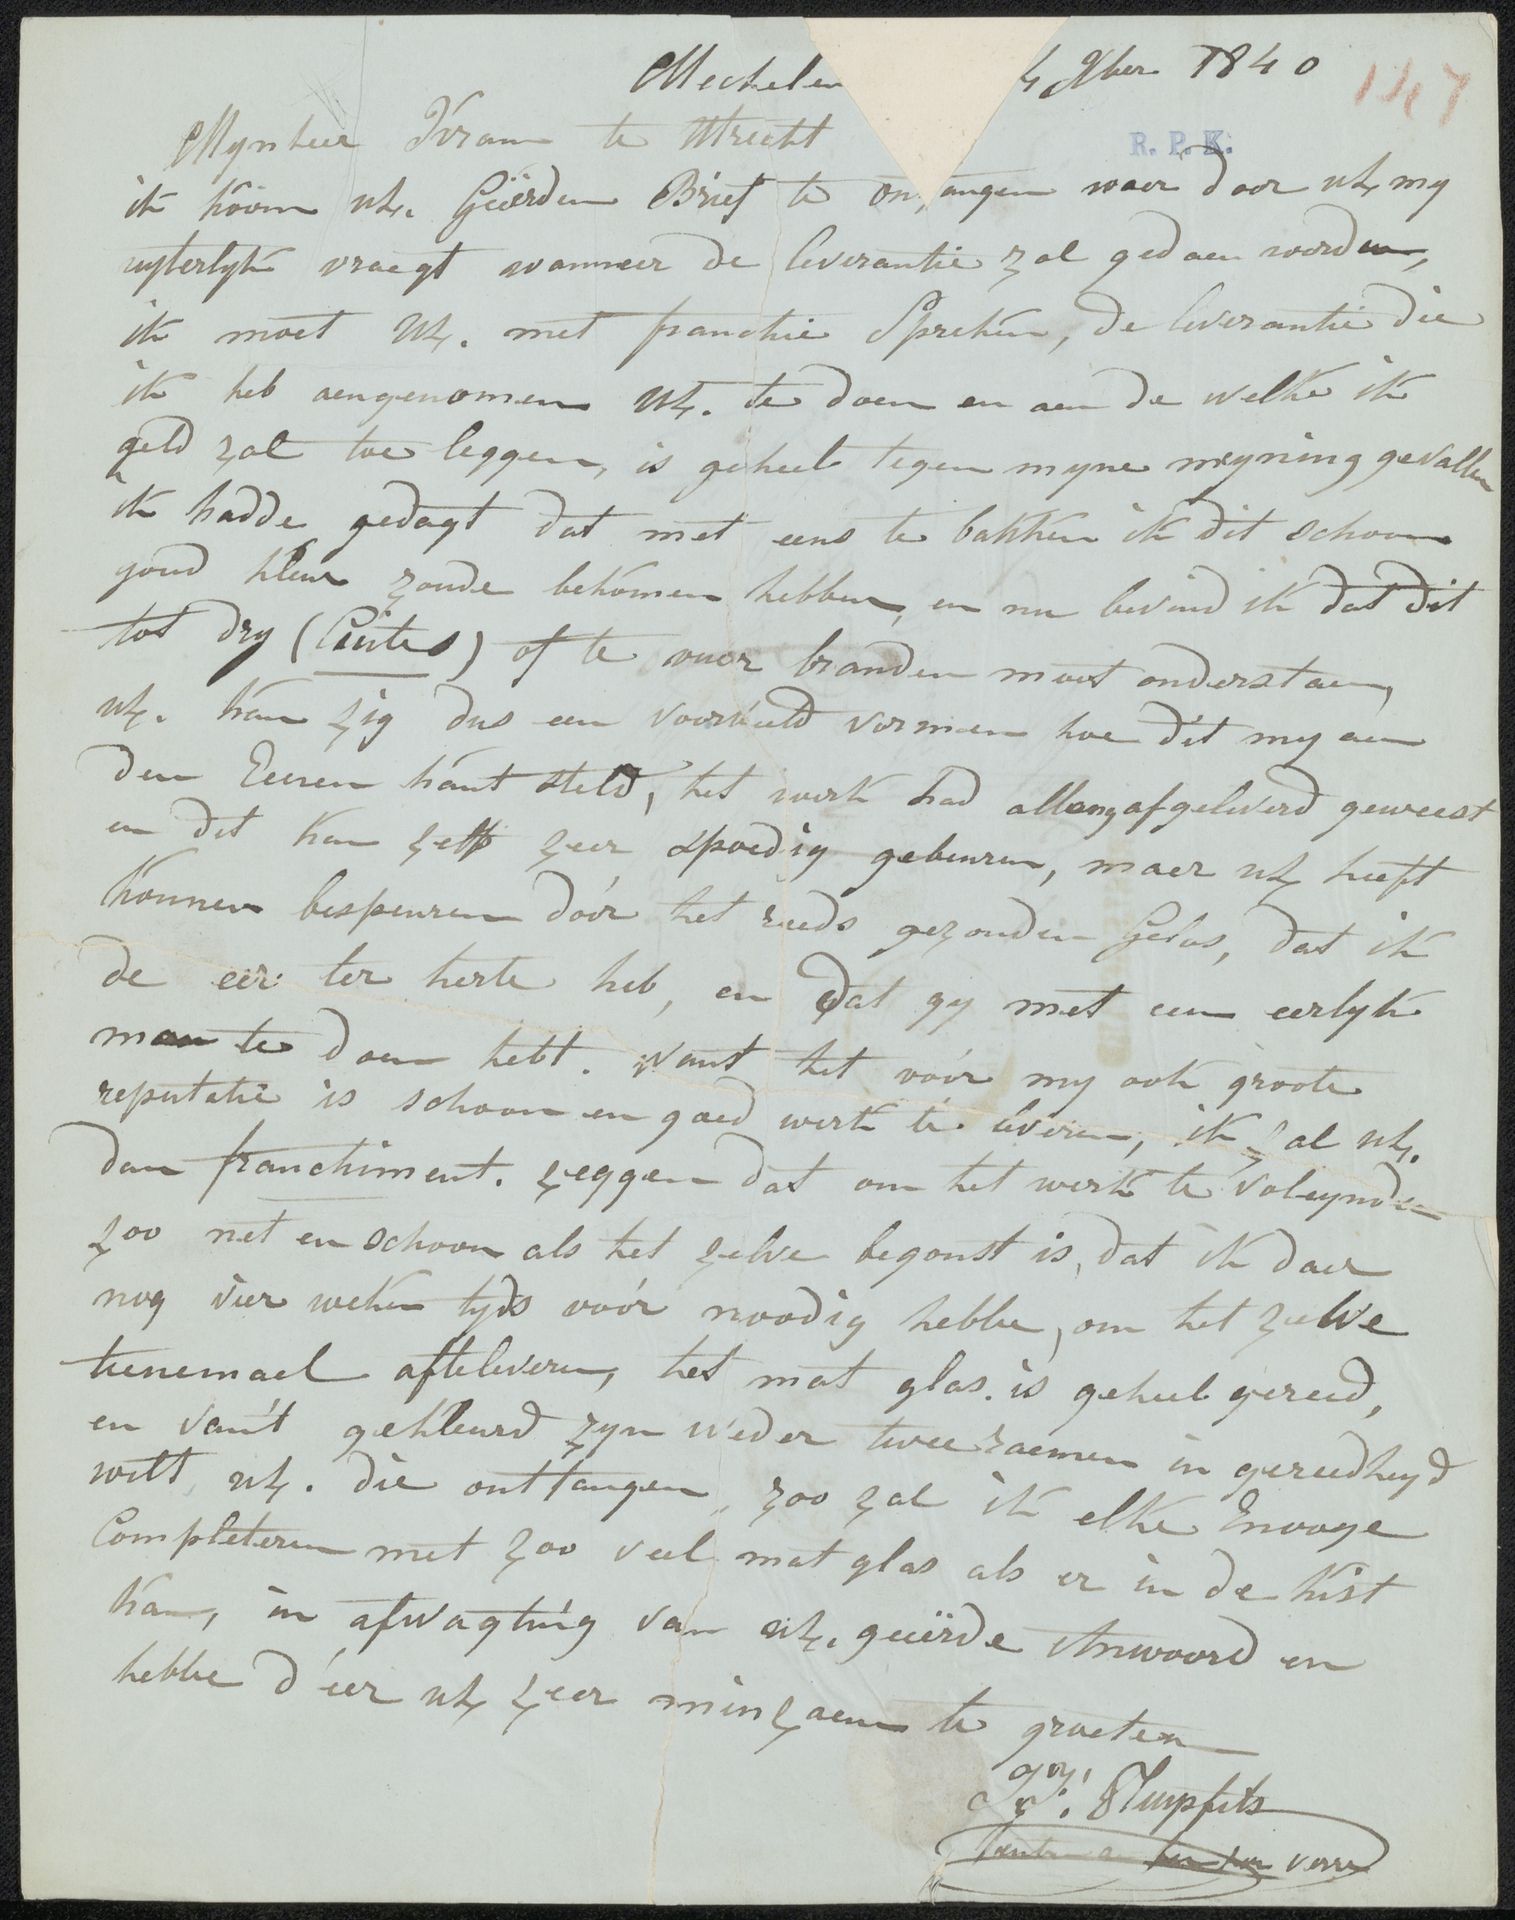 Mechelen 4 9ber 1840
147
Mynheer Kram te Utrecht
R. P. K.
ik koom UE. Geërden Brief te ontfangen waer door UE my
uyterlyk vraegt wanneer de leverantie zal gedaen worden,
ik moet UE. met franchie Spreken, de leverantie die
ik heb aengenomen UE. te doen en aen de welke ik
geld zal toe leggen, is geheel tegen myne meyning gevallen
ik hadde gedagt dat met eens te bakken ik dit schoon
goud kleur zoude bekomen hebben, en nu bevind ik dat dit
tot dry (Cuites) of te vuor branden moet onderstaen,
UE. kan zig dus een voorbeeld vormen hoe dit my aen
den Eenen kant steld, het werk had allang afgeleverd geweest
en dit kan zelfs zeer spoedig gebeuren, maer UE heeft
konnen bespeuren dóór het reeds gezonden Gelas, dat ik
de eer ter herte heb, en dat gy met een eerlyk
man te doen hebt. want het vóór my ook groote
reputatie is schoon en goed werk te leveren, ik zal UE.
dan franchiment. zeggen dat om het werk te voleynden
zoo net en schoon als het zelve begonst is, dat ik daer
nog vier weken tyds vóór noodig hebbe, om het zelve
teenemael afteleveren, het mat glas. is geheel gereed,
en van't gekleurd zyn weder twee raemen in gereedheyd
wilt UE. die ontfangen, zoo zal ik elke Envoye
Completeren met zoo veel mat glas als er in de kist
kan, in afwagting van UE. geëerde Antwoord en
hebbe d'eer UE zeer minzaem te groeten
Pluys fils
verre